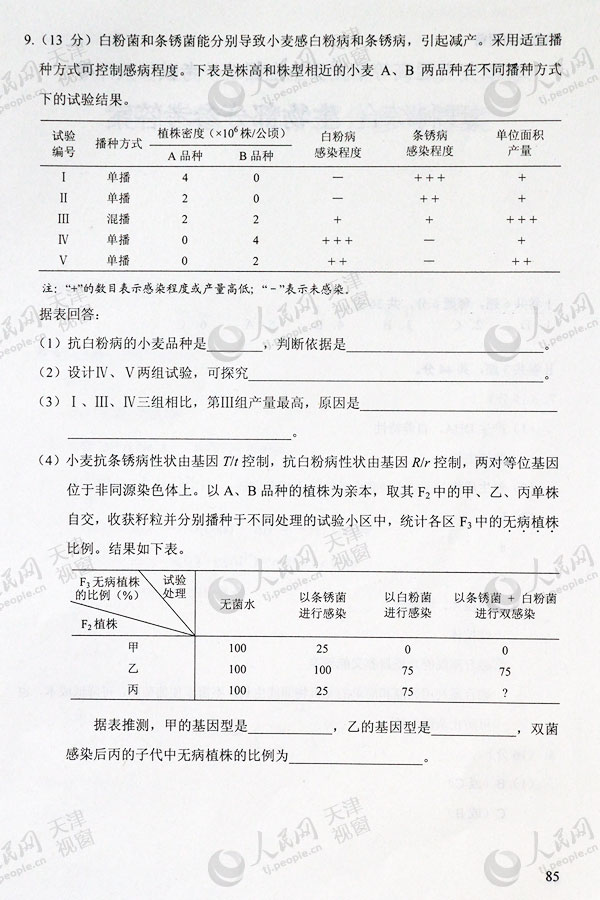 9.（13 分）白粉菌和条锈菌能分别导致小麦感白粉病和条锈病，引起减产。采用适宜播
种方式可控制感病程度。下表是株高和株型相近的小麦 A、B 两品种在不同播种方式
下的试验结果。
试验编号 播种方式 植株密度（×10⁶株/公顷） 白粉病感染程度 条锈病感染程度 单位面积产量
A 品种 B 品种
Ⅰ 单播 4 0 － +++ +
Ⅱ 单播 2 0 － ++ +
Ⅲ 混播 2 2 + + +++
Ⅳ 单播 0 4 +++ － +
Ⅴ 单播 0 2 ++ － ++
注：“+”的数目表示感染程度或产量高低；“－”表示未感染。
据表回答：
（1）抗白粉病的小麦品种是________，判断依据是____________________________。
（2）设计Ⅳ、Ⅴ两组试验，可探究__________________________________________。
（3）Ⅰ、Ⅲ、Ⅳ三组相比，第Ⅲ组产量最高，原因是____________________________
________________________________。
（4）小麦抗条锈病性状由基因 T/t 控制，抗白粉病性状由基因 R/r 控制，两对等位基因
位于非同源染色体上。以 A、B 品种的植株为亲本，取其 F₂中的甲、乙、丙单株
自交，收获籽粒并分别播种于不同处理的试验小区中，统计各区 F₃中的无病植株
比例。结果如下表。
F₃无病植株的比例（%） 试验处理 F₂植株 无菌水 以条锈菌进行感染 以白粉菌进行感染 以条锈菌 + 白粉菌进行双感染
甲 100 25 0 0
乙 100 100 75 75
丙 100 25 75 ?
据表推测，甲的基因型是____________，乙的基因型是____________，双菌
感染后丙的子代中无病植株的比例为___________________。
85
人民网
天津视窗
tj.people.cn